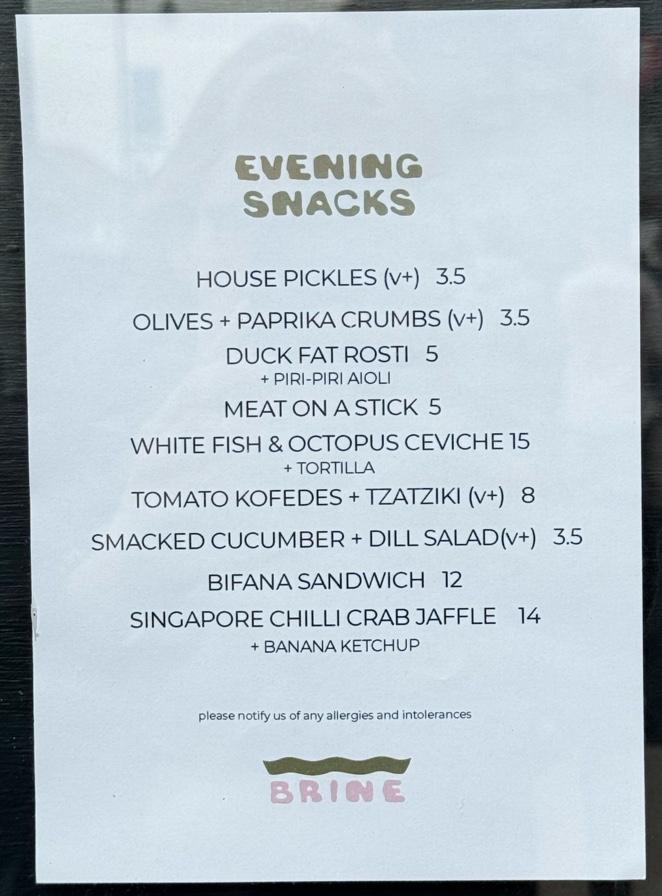 EVENING
SNACKS
HOUSE PICKLES (v+) 3.5
OLIVES + PAPRIKA CRUMBS (v+) 3.5
DUCK FAT ROSTI 5
+ PIRI-PIRI AIOLI
MEAT ON A STICK 5
WHITE FISH & OCTOPUS CEVICHE 15
+ TORTILLA
TOMATO KOFEDES + TZATZIKI (v+) 8
SMACKED CUCUMBER + DILL SALAD(v+) 3.5
BIFANA SANDWICH 12
SINGAPORE CHILLI CRAB JAFFLE 14
+ BANANA KETCHUP
please notify us of any allergies and intolerances
BRINE